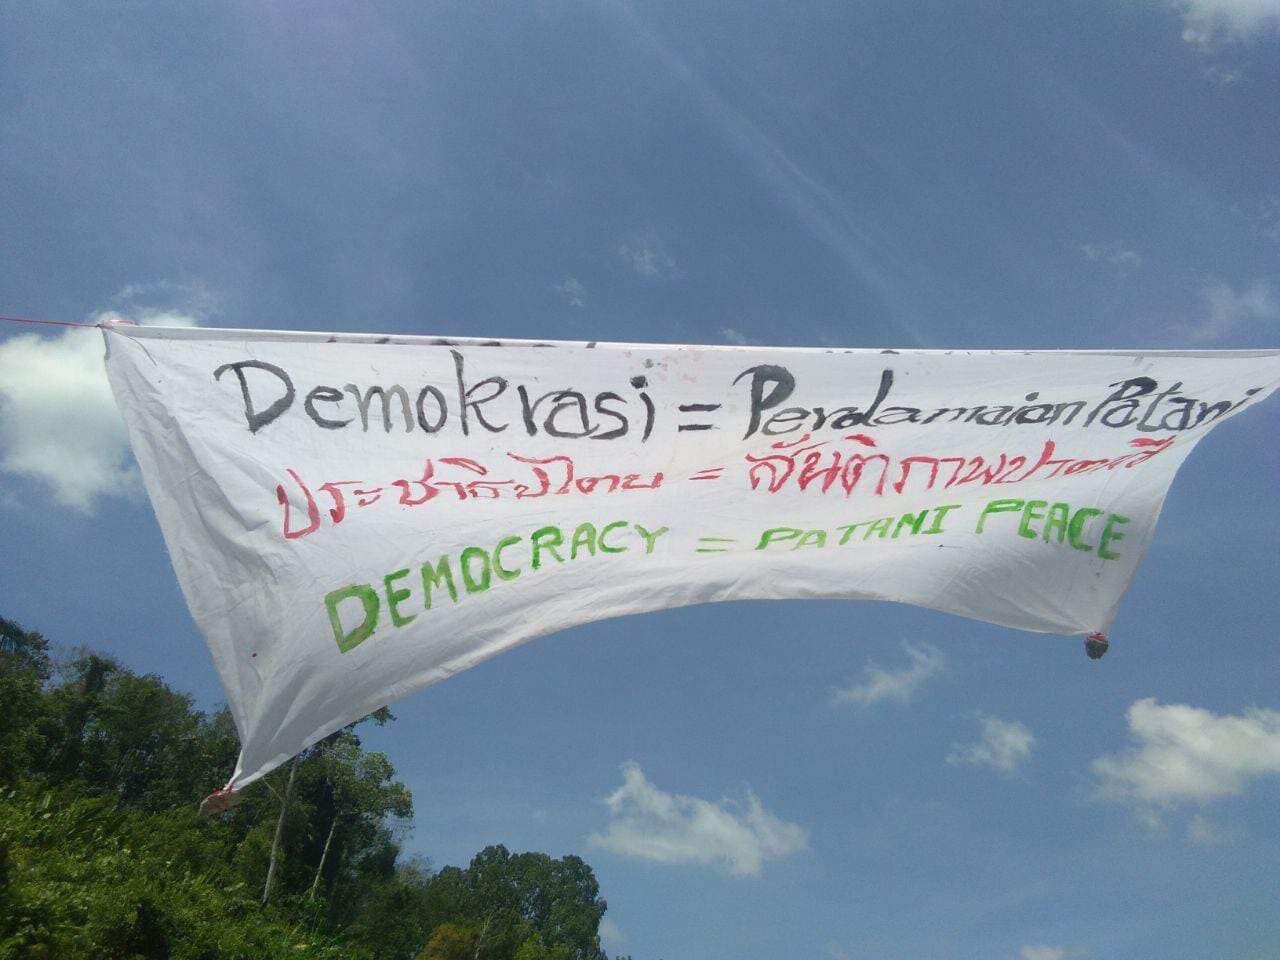 Demokrasi = Perdamaian Patani
ประชาธิปไตย = สันติภาพปาตานี
DEMOCRACY = PATANI PEACE